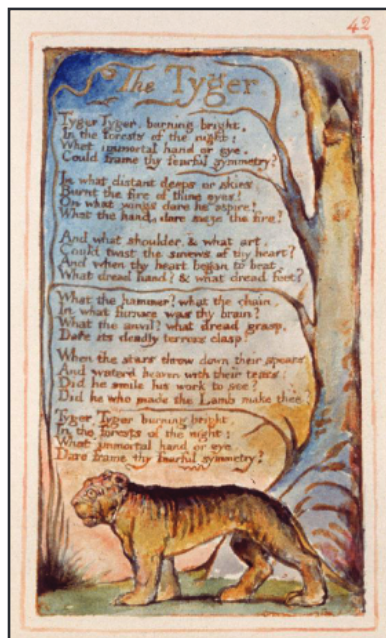 42
The Tyger
Tyger Tyger, burning bright,
In the forests of the night:
What immortal hand or eye,
Could frame thy fearful symmetry?
In what distant deeps or skies
Burnt the fire of thine eyes!
On what wings dare he aspire!
What the hand, dare sieze the fire!
And what shoulder, & what art,
Could twist the sinews of thy heart?
And when thy heart began to beat,
What dread hand? & what dread feet?
What the hammer? what the chain,
In what furnace was thy brain?
What the anvil? what dread grasp,
Dare its deadly terrors clasp!
When the stars threw down their spears
And water'd heaven with their tears:
Did he smile his work to see?
Did he who made the Lamb make thee
Tyger Tyger burning bright,
In the forests of the night:
What immortal hand or eye,
Dare frame thy fearful symmetry?